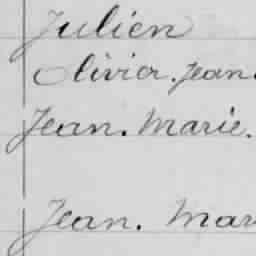 Julien
Olivier. Jean.
Jean. Marie.
Jean. Mar